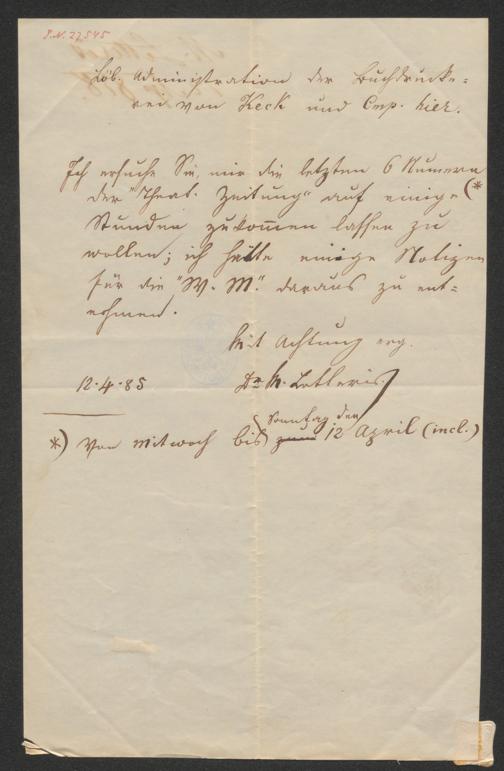 J.N. 27545
Löb. Administration der Buchdrucke=
rei von Keck und Cmp. hier.
Ich ersuche Sie, mir die letzten 6 Numern (*
der "Theat. Zeitung" auf einige
Stunden zukommen lassen zu
wollen; ich hätte einige Notizen
für die "W. M." daraus zu ent=
nehmen.
Mit Achtung erg.
12.4.85
Dr M. Letteris
*) Von Mittwoch bis Sonntag den 12 April (incl.)